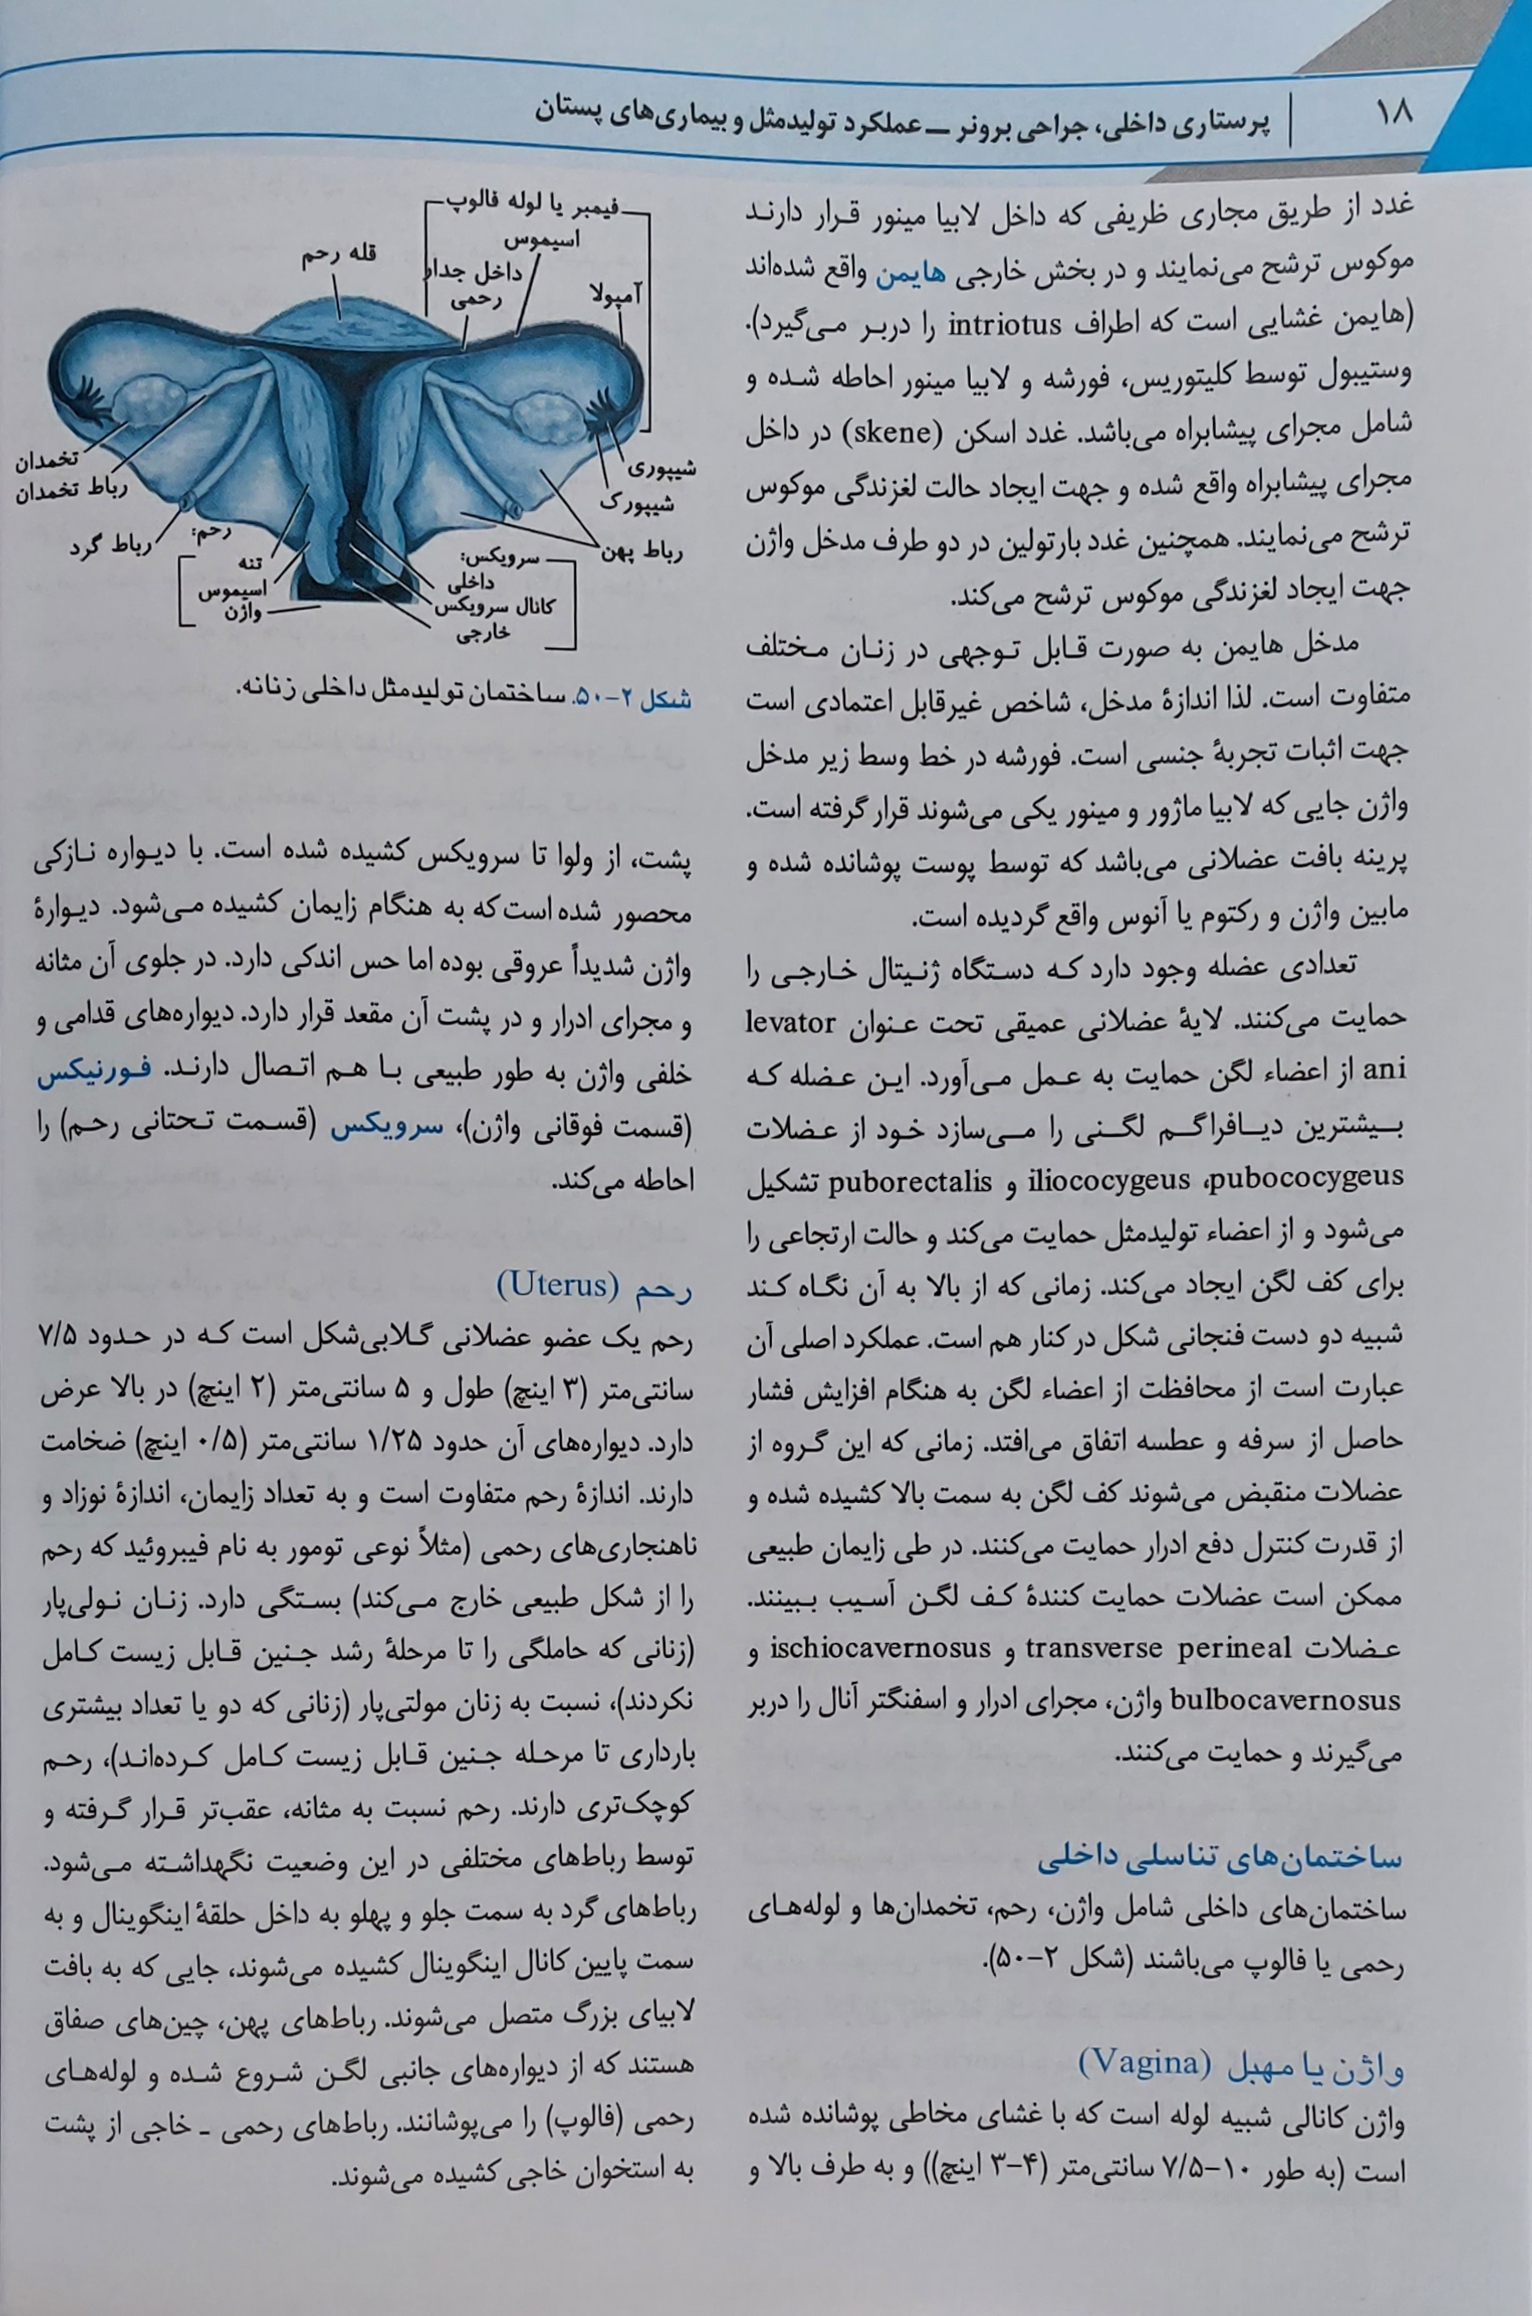 ۱۸
پرستاری داخلی، جراحی برونر ـ عملکرد تولیدمثل و بیماری‌های پستان
غدد از طریق مجاری ظریفی که داخل لابیا مینور قرار دارند
موکوس ترشح می‌نمایند و در بخش خارجی هایمن واقع شده‌اند
(هایمن غشایی است که اطراف intriotus را دربر می‌گیرد).
وستیبول توسط کلیتوریس، فورشه و لابیا مینور احاطه شده و
شامل مجرای پیشابراه می‌باشد. غدد اسکن (skene) در داخل
مجرای پیشابراه واقع شده و جهت ایجاد حالت لغزندگی موکوس
ترشح می‌نمایند. همچنین غدد بارتولین در دو طرف مدخل واژن
جهت ایجاد لغزندگی موکوس ترشح می‌کند.
مدخل هایمن به صورت قابل توجهی در زنان مختلف
متفاوت است. لذا اندازهٔ مدخل، شاخص غیرقابل اعتمادی است
جهت اثبات تجربهٔ جنسی است. فورشه در خط وسط زیر مدخل
واژن جایی که لابیا ماژور و مینور یکی می‌شوند قرار گرفته است.
پرینه بافت عضلانی می‌باشد که توسط پوست پوشانده شده و
مابین واژن و رکتوم یا آنوس واقع گردیده است.
تعدادی عضله وجود دارد که دستگاه ژنیتال خارجی را
حمایت می‌کنند. لایهٔ عضلانی عمیقی تحت عنوان levator
ani از اعضاء لگن حمایت به عمل می‌آورد. این عضله که
بیشترین دیافراگم لگنی را می‌سازد خود از عضلات
pubococygeus، iliococygeus و puborectalis تشکیل
می‌شود و از اعضاء تولیدمثل حمایت می‌کند و حالت ارتجاعی را
برای کف لگن ایجاد می‌کند. زمانی که از بالا به آن نگاه کند
شبیه دو دست فنجانی شکل در کنار هم است. عملکرد اصلی آن
عبارت است از محافظت از اعضاء لگن به هنگام افزایش فشار
حاصل از سرفه و عطسه اتفاق می‌افتد. زمانی که این گروه از
عضلات منقبض می‌شوند کف لگن به سمت بالا کشیده شده و
از قدرت کنترل دفع ادرار حمایت می‌کنند. در طی زایمان طبیعی
ممکن است عضلات حمایت کنندهٔ کف لگن آسیب ببینند.
عضلات transverse perineal و ischiocavernosus و
bulbocavernosus واژن، مجرای ادرار و اسفنگتر آنال را دربر
می‌گیرند و حمایت می‌کنند.
ساختمان‌های تناسلی داخلی
ساختمان‌های داخلی شامل واژن، رحم، تخمدان‌ها و لوله‌های
رحمی یا فالوپ می‌باشند (شکل ۲-۵۰).
واژن یا مهبل (Vagina)
واژن کانالی شبیه لوله است که با غشای مخاطی پوشانده شده
است (به طور ۱۰-۷/۵ سانتی‌متر (۴-۳ اینچ)) و به طرف بالا و
فیمبر یا لوله فالوپ
اسیموس
قله رحم
داخل جدار
رحمی
آمپولا
تخمدان
رباط تخمدان
رباط گرد
شیپوری
شیپورک
رباط پهن
رحم:
تنه
اسیموس
واژن
سرویکس:
داخلی
کانال سرویکس
خارجی
شکل ۲-۵۰. ساختمان تولیدمثل داخلی زنانه.
پشت، از ولوا تا سرویکس کشیده شده است. با دیواره نازکی
محصور شده است که به هنگام زایمان کشیده می‌شود. دیوارهٔ
واژن شدیداً عروقی بوده اما حس اندکی دارد. در جلوی آن مثانه
و مجرای ادرار و در پشت آن مقعد قرار دارد. دیواره‌های قدامی و
خلفی واژن به طور طبیعی با هم اتصال دارند. فورنیکس
(قسمت فوقانی واژن)، سرویکس (قسمت تحتانی رحم) را
احاطه می‌کند.
رحم (Uterus)
رحم یک عضو عضلانی گلابی‌شکل است که در حدود ۷/۵
سانتی‌متر (۳ اینچ) طول و ۵ سانتی‌متر (۲ اینچ) در بالا عرض
دارد. دیواره‌های آن حدود ۱/۲۵ سانتی‌متر (۰/۵ اینچ) ضخامت
دارند. اندازهٔ رحم متفاوت است و به تعداد زایمان، اندازهٔ نوزاد و
ناهنجاری‌های رحمی (مثلاً نوعی تومور به نام فیبروئید که رحم
را از شکل طبیعی خارج می‌کند) بستگی دارد. زنان نولی‌پار
(زنانی که حاملگی را تا مرحلهٔ رشد جنین قابل زیست کامل
نکردند)، نسبت به زنان مولتی‌پار (زنانی که دو یا تعداد بیشتری
بارداری تا مرحله جنین قابل زیست کامل کرده‌اند)، رحم
کوچک‌تری دارند. رحم نسبت به مثانه، عقب‌تر قرار گرفته و
توسط رباط‌های مختلفی در این وضعیت نگهداشته می‌شود.
رباط‌های گرد به سمت جلو و پهلو به داخل حلقهٔ اینگوینال و به
سمت پایین کانال اینگوینال کشیده می‌شوند، جایی که به بافت
لابیای بزرگ متصل می‌شوند. رباط‌های پهن، چین‌های صفاق
هستند که از دیواره‌های جانبی لگن شروع شده و لوله‌های
رحمی (فالوپ) را می‌پوشانند. رباط‌های رحمی ـ خاجی از پشت
به استخوان خاجی کشیده می‌شوند.